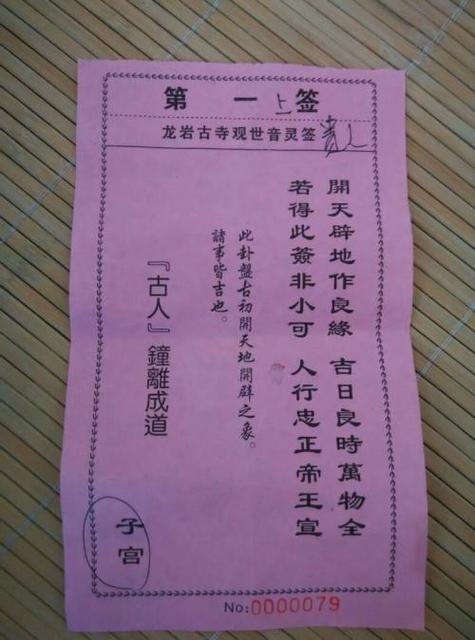 第一上签
龙岩古寺观世音灵签 贵人
開天辟地作良緣 吉日良時萬物全
若得此簽非小可 人行忠正帝王宣
此卦盤古初開天地開辟之象。
諸事皆吉也。
『古人』鐘離成道
子宫
No:0000079